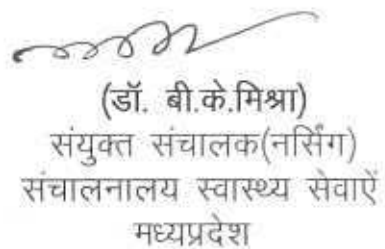 (डॉ. बी.के.मिश्रा)
संयुक्त संचालक(नर्सिंग)
संचालनालय स्वास्थ्य सेवाऐं
मध्यप्रदेश